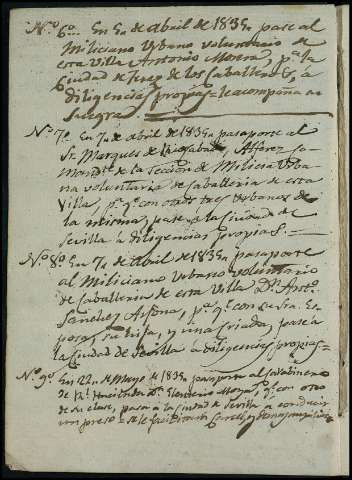 N.º 6º. En 5,, de Abril de 1835,, pase al
Miliciano Urbano voluntario de
esta Villa Antonio Morera, p.ª la
Ciudad de Jerez de los Caballeros, á
diligencias propias = le acompaña su
suegra.
N.º 7º. En 7,, de Abril de 1835,, pasaporte al
Sr. Marques de Alferez Co-
mand.te de la Seccion de Milicia Urba
na voluntaria de Caballeria de esta
Villa, p.ª q.e con otros tres Urbanos de
la misma, pase á la Ciudad de
Sevilla á diligencias propias. =
N.º 8º. En 7,, de Abril de 1835,, pasaporte
al Miliciano Urbano voluntario
de Caballeria de esta Villa D.n Ant.º
Sanchez Arjona, p.ª q.e con su Sra. Es
posa, su hija, y una criada, pase á
la Ciudad de Sevilla á diligencias propias =
N.º 9º. En 22,, de Mayo de 1835,, pasaporte al Carabinero
de R.l Hacienda D.n Moya, p.ª q.e con otro
de su clase, pase á la Ciudad de Sevilla á conducir
un preso = se le facilitará